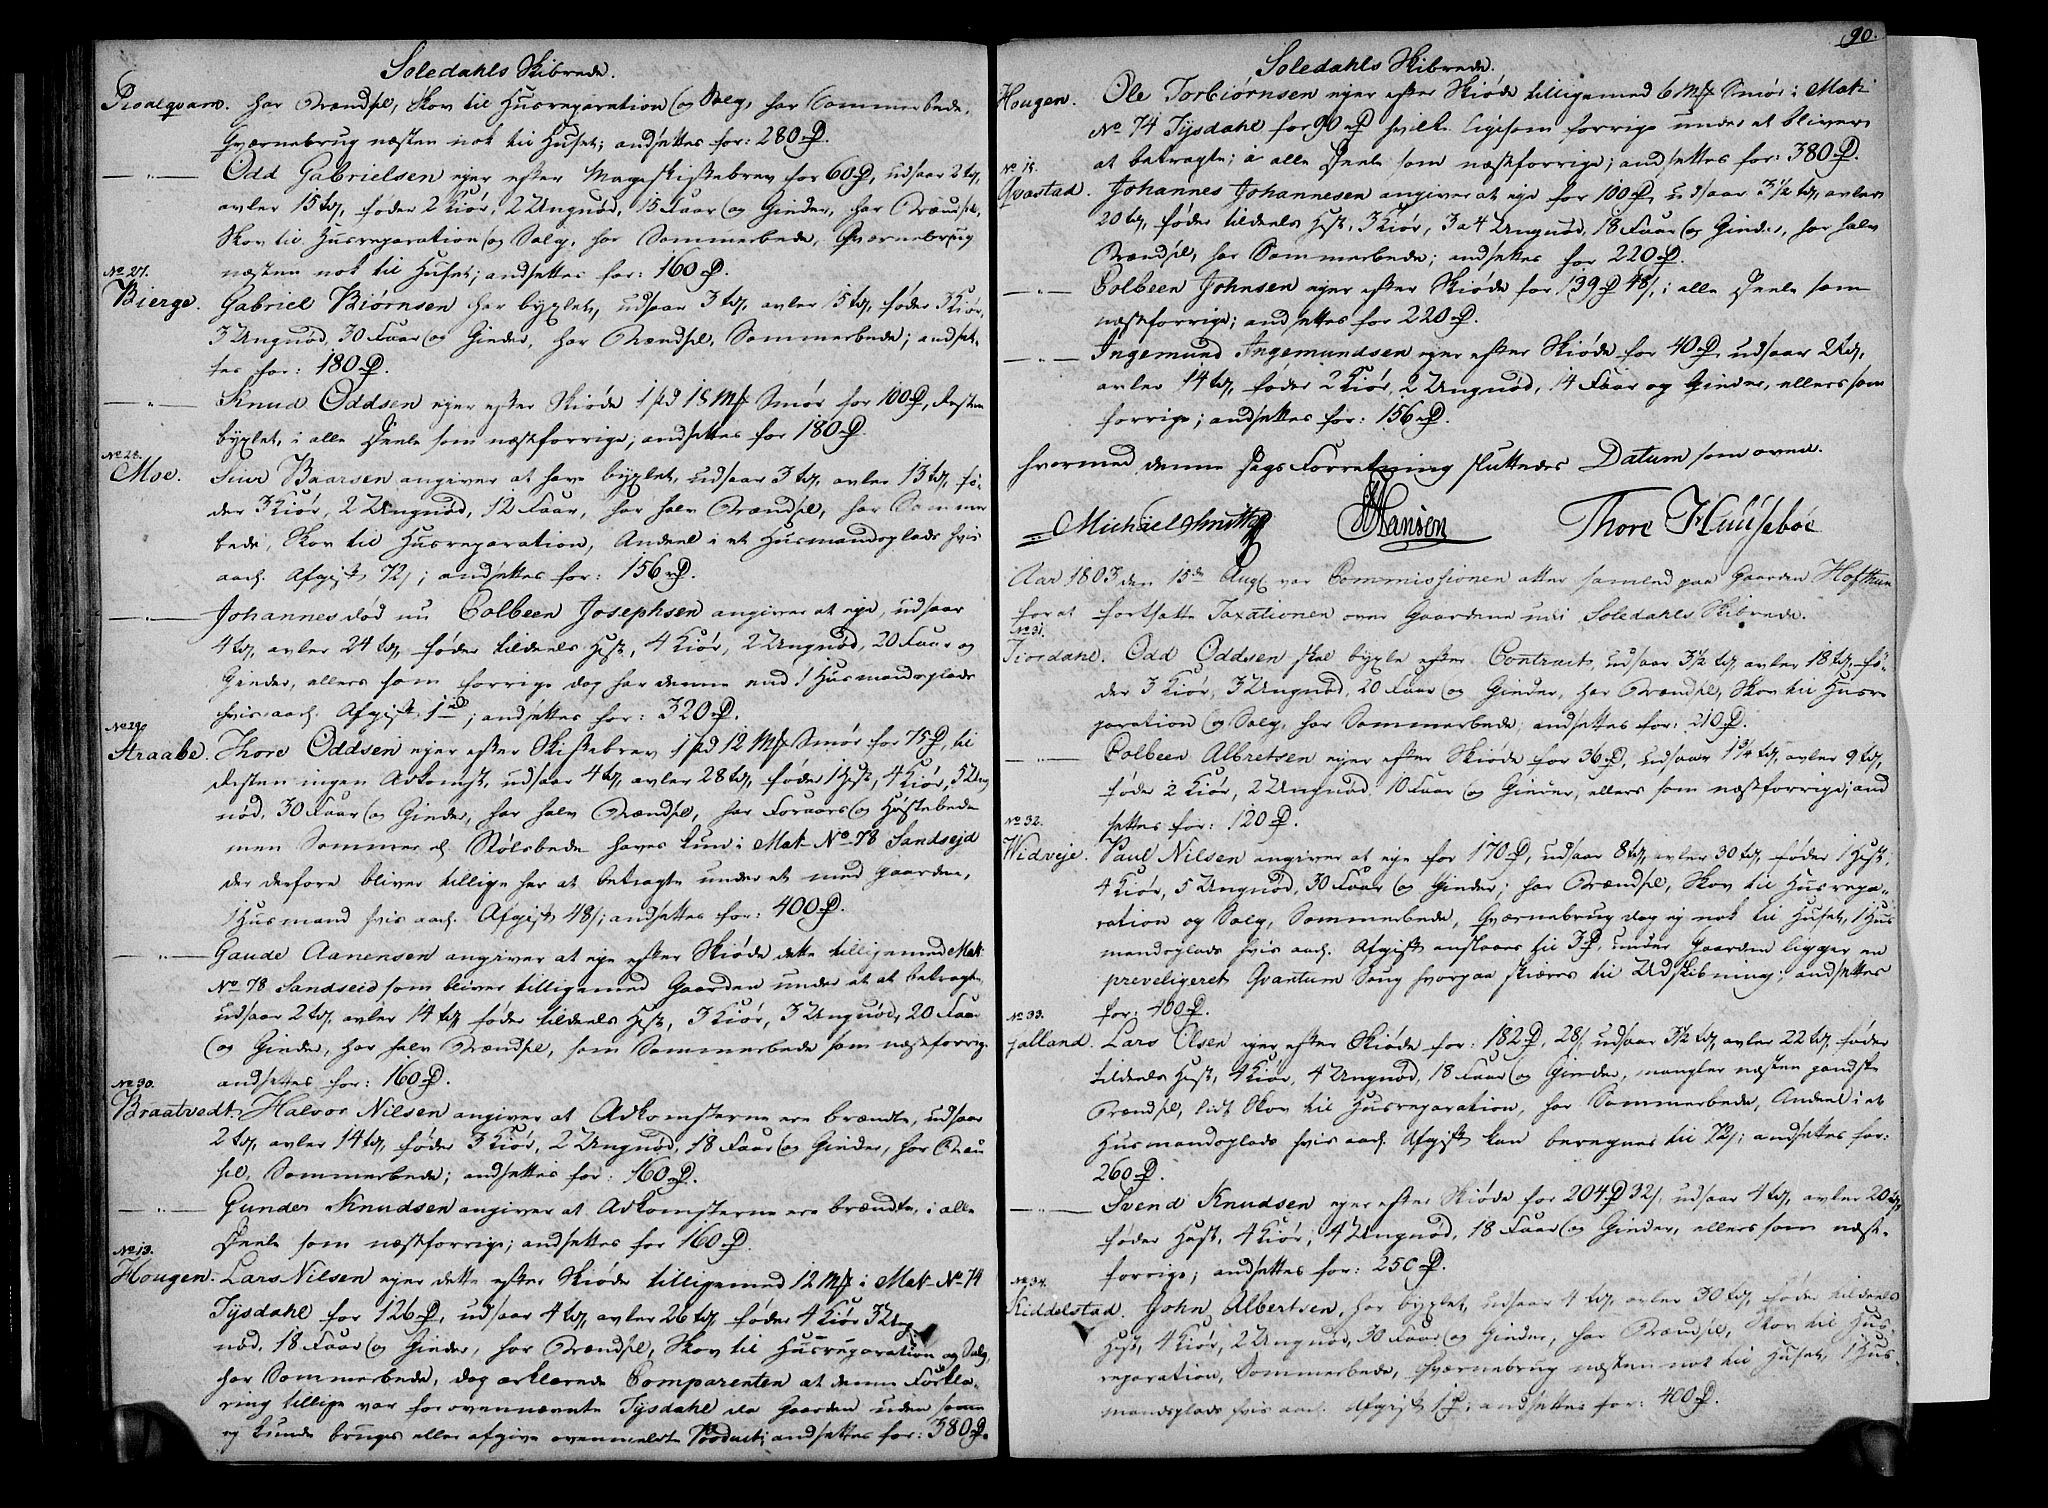 Soledahls Skibrede.
har Brændsel, Skov til Husreparation og Salg, har Sommerbede,
Qværnebrug næsten nok til Huset; andsettes for: 280 rd.
—„— Odd Gabrielsen ejer efter Mageskiftebrev for 60 rd, udsaar 2 td,
avler 15 td, føder 2 Kiør, 2 Ungnød, 15 Faar og Gieder, har Brændsel,
Skov til Husreparation og Salg, har Sommerbede, Qværnebrug
No 27. næsten nok til Huset; andsettes for: 160 rd.
Bierge. Gabriel Biørnsen har byxlet, udsaar 3 td, avler 15 td, føder 3 Kiør,
3 Ungnød, 30 Faar og Gieder, har Brændsel, Sommerbede; andset-
tes for: 180 rd.
—„— Knud Oddsen ejer efter Skiøde 1 pd 18 Mk Smør for 100 rd, Resten
byxlet, i alle Deele som næstforrige; andsettes for 180 rd.
No 28.
Moe. Siur Baarsen angiver at have byxlet, udsaar 3 td, avler 13 td, fø-
der 3 Kiør, 2 Ungnød, 12 Faar, har halv Brændsel, har Sommer
bede, Skov til Husreparation, Andeel i et Husmandsplads hvis
aarl. Afgift 72 s; andsettes for: 156 rd.
—„— Johannes død nu Colbeen Josephsen angiver at eje, udsaar
4 td, avler 24 td, føder tildeels Hest, 4 Kiør, 2 Ungnød, 20 Faar og
Gieder, ellers som forrige dog har denne end 1 Husmandsplads
hvis aarl. Afgift 1 rd; andsettes for: 320 rd.
No 29.
Straabe. Thore Oddsen ejer efter Skiftebrev 1 pd 12 Mk Smør for 75 rd, til
Resten ingen Adkomst, udsaar 4 td, avler 28 td, føder 1 Hest, 4 Kiør, 5 Ung
nød, 30 Faar og Gieder, har halv Brændsel, har Foraars og Høstebede
men Sommer el. Stølsbede haves kun i Mat. No 78 Sandsejd
der derfore bliver tillige her at betragte under et med Gaarden,
1 Husmand hvis aarl. Afgift 48 s; andsettes for: 400 rd.
—„— Gaude Aanensen angiver at eje efter Skiøde dette tilligemed Mat.
No 78 Sandseid som bliver tilligemed Gaarden under et at betragte,
udsaar 2 td, avler 14 td, føder tildeels Hest, 3 Kiør, 3 Ungnød, 20 Faar
og Gieder, har halv Brændsel, som Sommerbede som næstforrige
No 30. andsettes for: 160 rd.
Braatvedt. Halvor Nilsen angiver at Adkomsterne ere brændte, udsaar
2 td, avler 14 td, føder 3 Kiør, 2 Ungnød, 18 Faar og Gieder, har Bræn
sel, Sommerbede; andsettes for: 160 rd.
—„— Gunder Knudsen angiver at Adkomsterne ere brændte, i alle
No 13. Deele som næstforrige; andsettes for 160 rd.
Hougen. Lars Nilsen ejer dette efter Skiøde tilligemed 12 Mk i Mat. No 74
Tysdahl for 126 rd, udsaar 4 td, avler 26 td, føder 4 Kiør 3 Ung
nød, 18 Faar og Gieder, har Brændsel, Skov til Husreparation og Salg,
har Sommerbede, dog erklærede Comparenten at denne Forkla-
ring tillige var for ovennævnte Tysdahl da Gaarden uden samme
ej kunde bruges eller afgive ovenmeldte Product; andsettes for: 380 rd.
90.
Soledahls Skibrede.
Hougen. Ole Torbiørnsen ejer efter Skiøde tilligemed 6 Mk Smør i Mat.
No 74 Tysdahl for 90 rd hvilke ligesom forrige under et bliver
at betragte; i alle Deele som næstforrige; andsettes for: 380 rd.
Qvastad. Johannes Johannesen angiver at eje for 100 rd, udsaar 3 1/2 td, avler
20 td, føder tildeels Hest, 3 Kiør, 3 a 4 Ungnød, 18 Faar og Gieder, har halv
Brændsel, har Sommerbede; andsettes for 220 rd.
—„— Colbeen Johnsen ejer efter Skiøde for 139 rd 48 s, i alle Deele som
næstforrige; andsettes for 220 rd.
—„— Ingemund Ingemundsen ejer efter Skiøde for 40 rd, udsaar 2 td,
avler 14 td, føder 2 Kiør, 2 Ungnød, 14 Faar og Gieder, ellers som
forrige; andsettes for: 156 rd.
hvormed denne Dags Forretning sluttedes Datum som oven.
Michael Smith Hansen Thore Huusebøe
Aar 1803 den 15de Augt var Commissionen atter samlet paa Gaarden Hofthun
for at fortsætte Taxationen over Gaardene udi Soledahls Skibrede.
No 31.
Fiordahl. Odd Oddsen skal byxle efter Contract, udsaar 3 1/2 td, avler 18 td, fø-
der 3 Kiør, 3 Ungnød, 20 Faar og Gieder, har Brændsel, Skov til Husre
paration og Salg, har Sommerbede; andsettes for: 210 rd.
—„— Colbeen Albretsen ejer efter Skiøde for 36 rd, udsaar 1 3/4 td, avler 9 td,
føder 2 Kiør, 2 Ungnød, 10 Faar og Gieder, ellers som næstforrige; and
No 32. settes for: 120 rd.
Widveje. Paul Nilsen angiver at eje for 170 rd, udsaar 8 td, avler 30 td, føder 1 Hest,
4 Kiør, 5 Ungnød, 30 Faar og Gieder; har Brændsel, Skov til Husrepa-
ration og Salg, Sommerbede, Qværnebrug dog ej nok til Huset, 1 Hus
mandsplads hvis aarl. Afgift anslaaes til 3 rd, under Gaarden ligger en
preveligeret Qvantum Saug hvorpaa skiæres til Udskibning; andsettes
No 33. for: 400 rd.
Jalland. Lars Olsen ejer efter Skiøde for: 182 rd, 28 s, udsaar 3 1/2 td, avler 22 td, føder
tildeels Hest, 4 Kiør, 4 Ungnød, 18 Faar og Gieder, mangler næsten gandske
Brændsel, lidt Skov til Husreparation, har Sommerbede, Andeel i et
Husmandsplads hvis aarl. Afgift kan beregnes til 72 s; andsettes for:
260 rd.
—„— Svend Knudsen ejer efter Skiøde for 204 rd 32 s, udsaar 4 td, avler 20 td,
føder Hest, 4 Kiør, 4 Ungnød, 18 Faar og Gieder, ellers som næst-
No 34. forrige; andsettes for: 250 rd.
Kiddelstad. John Albertsen, har byxlet, udsaar 4 td, avler 30 td, føder tildeels
Hest, 4 Kiør, 2 Ungnød, 30 Faar og Gieder, har Brændsel, Skov til Hus-
reparation, Sommerbede, Qværnebrug næsten nok til Huset, 1 Hus-
mandsplads hvis aarl. Afgift 1 rd; andsettes for: 400 rd.